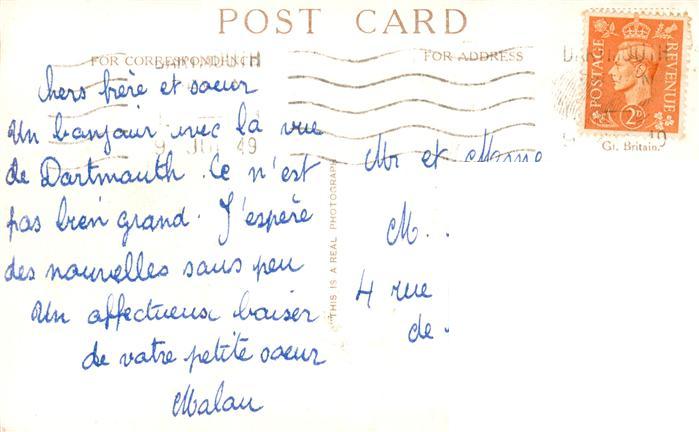 POST CARD
FOR CORRESPONDENCE
FOR ADDRESS
POSTAGE
REVENUE
2D
Gt. Britain.
DARTMOUTH
9 JUL 49
"THIS IS A REAL PHOTOGRAPH
chers frère et soeur
Un bonjour avec la vue
de Dartmouth. Ce n'est
pas bien grand. J'espère
des nouvelles sous peu
Un affectueux baiser
de votre petite soeur
Malou
Mr et
M.
4 rue
de